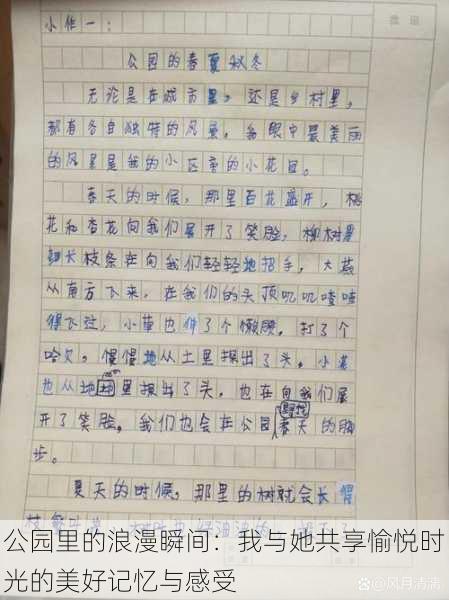 小作一：
公园的春夏秋冬
无论是在城市里，还是乡村里，
都有各自独特的风景。我眼中最美丽
的风景是我的小区里的小花园。
春天的时候，那里百花盛开，桃
花和杏花向我们展开了笑脸，柳树
细长枝条在向我们轻轻地招手，大燕
从南方飞来，在我们的头顶叽叽喳喳
得飞过，小草也伸了个懒腰，打了个
哈欠，慢慢地从土里探出了头。小花
也从地里探出了头，也在向我们展
开了笑脸。我们也会在公园寻找春天的脚
步。
夏天的时候，那里的树就会长
公园里的浪漫瞬间：我与她共享愉悦时
光的美好记忆与感受
@风月清满